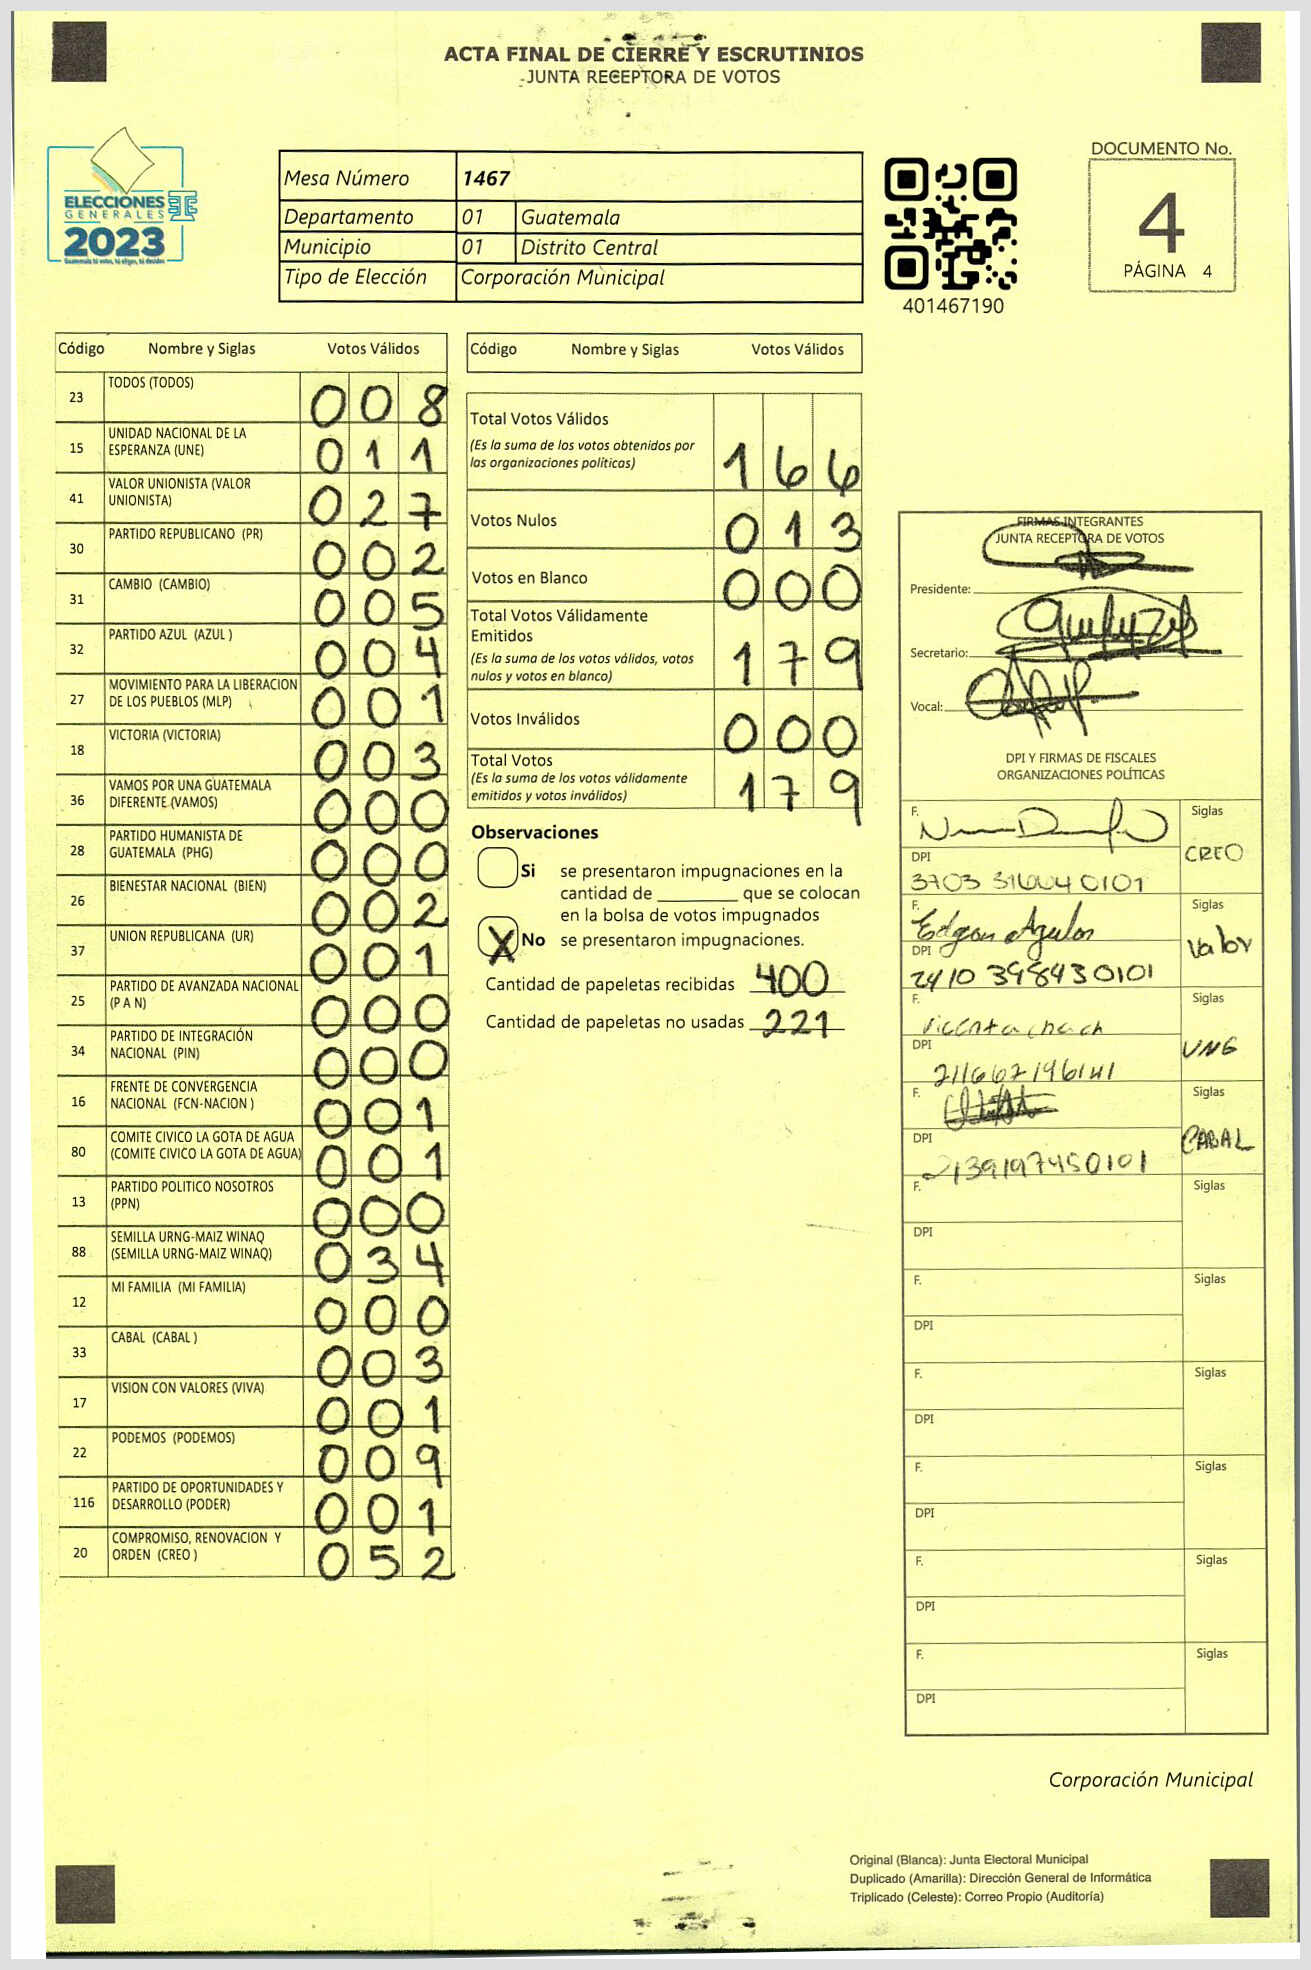 ACTA FINAL DE CIERRE Y ESCRUTINIOS
JUNTA RECEPTORA DE VOTOS
ELECCIONES
GENERALES
2023
Guatemala tú votas, tú eliges, tú decides
Mesa Número 1467
Departamento 01 Guatemala
Municipio 01 Distrito Central
Tipo de Elección Corporación Municipal
401467190
DOCUMENTO No.
4
PÁGINA 4
Código Nombre y Siglas Votos Válidos
23 TODOS (TODOS) 008
15 UNIDAD NACIONAL DE LA
ESPERANZA (UNE) 011
41 VALOR UNIONISTA (VALOR
UNIONISTA) 027
30 PARTIDO REPUBLICANO (PR) 002
31 CAMBIO (CAMBIO) 005
32 PARTIDO AZUL (AZUL ) 004
27 MOVIMIENTO PARA LA LIBERACION
DE LOS PUEBLOS (MLP) 001
18 VICTORIA (VICTORIA) 003
36 VAMOS POR UNA GUATEMALA
DIFERENTE (VAMOS) 000
28 PARTIDO HUMANISTA DE
GUATEMALA (PHG) 000
26 BIENESTAR NACIONAL (BIEN) 002
37 UNION REPUBLICANA (UR) 001
25 PARTIDO DE AVANZADA NACIONAL
(P A N) 000
34 PARTIDO DE INTEGRACIÓN
NACIONAL (PIN) 000
16 FRENTE DE CONVERGENCIA
NACIONAL (FCN-NACION ) 001
80 COMITE CIVICO LA GOTA DE AGUA
(COMITE CIVICO LA GOTA DE AGUA) 001
13 PARTIDO POLITICO NOSOTROS
(PPN) 000
88 SEMILLA URNG-MAIZ WINAQ
(SEMILLA URNG-MAIZ WINAQ) 034
12 MI FAMILIA (MI FAMILIA) 000
33 CABAL (CABAL ) 003
17 VISION CON VALORES (VIVA) 001
22 PODEMOS (PODEMOS) 009
116 PARTIDO DE OPORTUNIDADES Y
DESARROLLO (PODER) 001
20 COMPROMISO, RENOVACION Y
ORDEN (CREO ) 052
Código Nombre y Siglas Votos Válidos
Total Votos Válidos
(Es la suma de los votos obtenidos por
las organizaciones políticas) 166
Votos Nulos 013
Votos en Blanco 000
Total Votos Válidamente
Emitidos
(Es la suma de los votos válidos, votos
nulos y votos en blanco) 179
Votos Inválidos 000
Total Votos
(Es la suma de los votos válidamente
emitidos y votos inválidos) 179
Observaciones
Si se presentaron impugnaciones en la
cantidad de ________ que se colocan
en la bolsa de votos impugnados
X No se presentaron impugnaciones.
Cantidad de papeletas recibidas 400
Cantidad de papeletas no usadas 221
FIRMAS INTEGRANTES
JUNTA RECEPTORA DE VOTOS
Presidente:
Secretario:
Vocal:
DPI Y FIRMAS DE FISCALES
ORGANIZACIONES POLÍTICAS
F. Siglas
CREO
DPI
F. Edgar Siglas
Valor
DPI
2410 398430101
F. Siglas
UNE
DPI
F. Siglas
CABAL
DPI
F. Siglas
DPI
F. Siglas
DPI
F. Siglas
DPI
F. Siglas
DPI
F. Siglas
DPI
F. Siglas
DPI
Corporación Municipal
Original (Blanca): Junta Electoral Municipal
Duplicado (Amarilla): Dirección General de Informática
Triplicado (Celeste): Correo Propio (Auditoría)